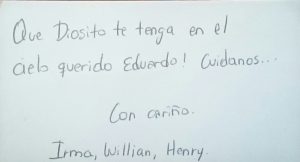 Que Diosito te tenga en el
cielo querido Eduardo! Cuidanos...
Con cariño.
Irma, Willian, Henry.